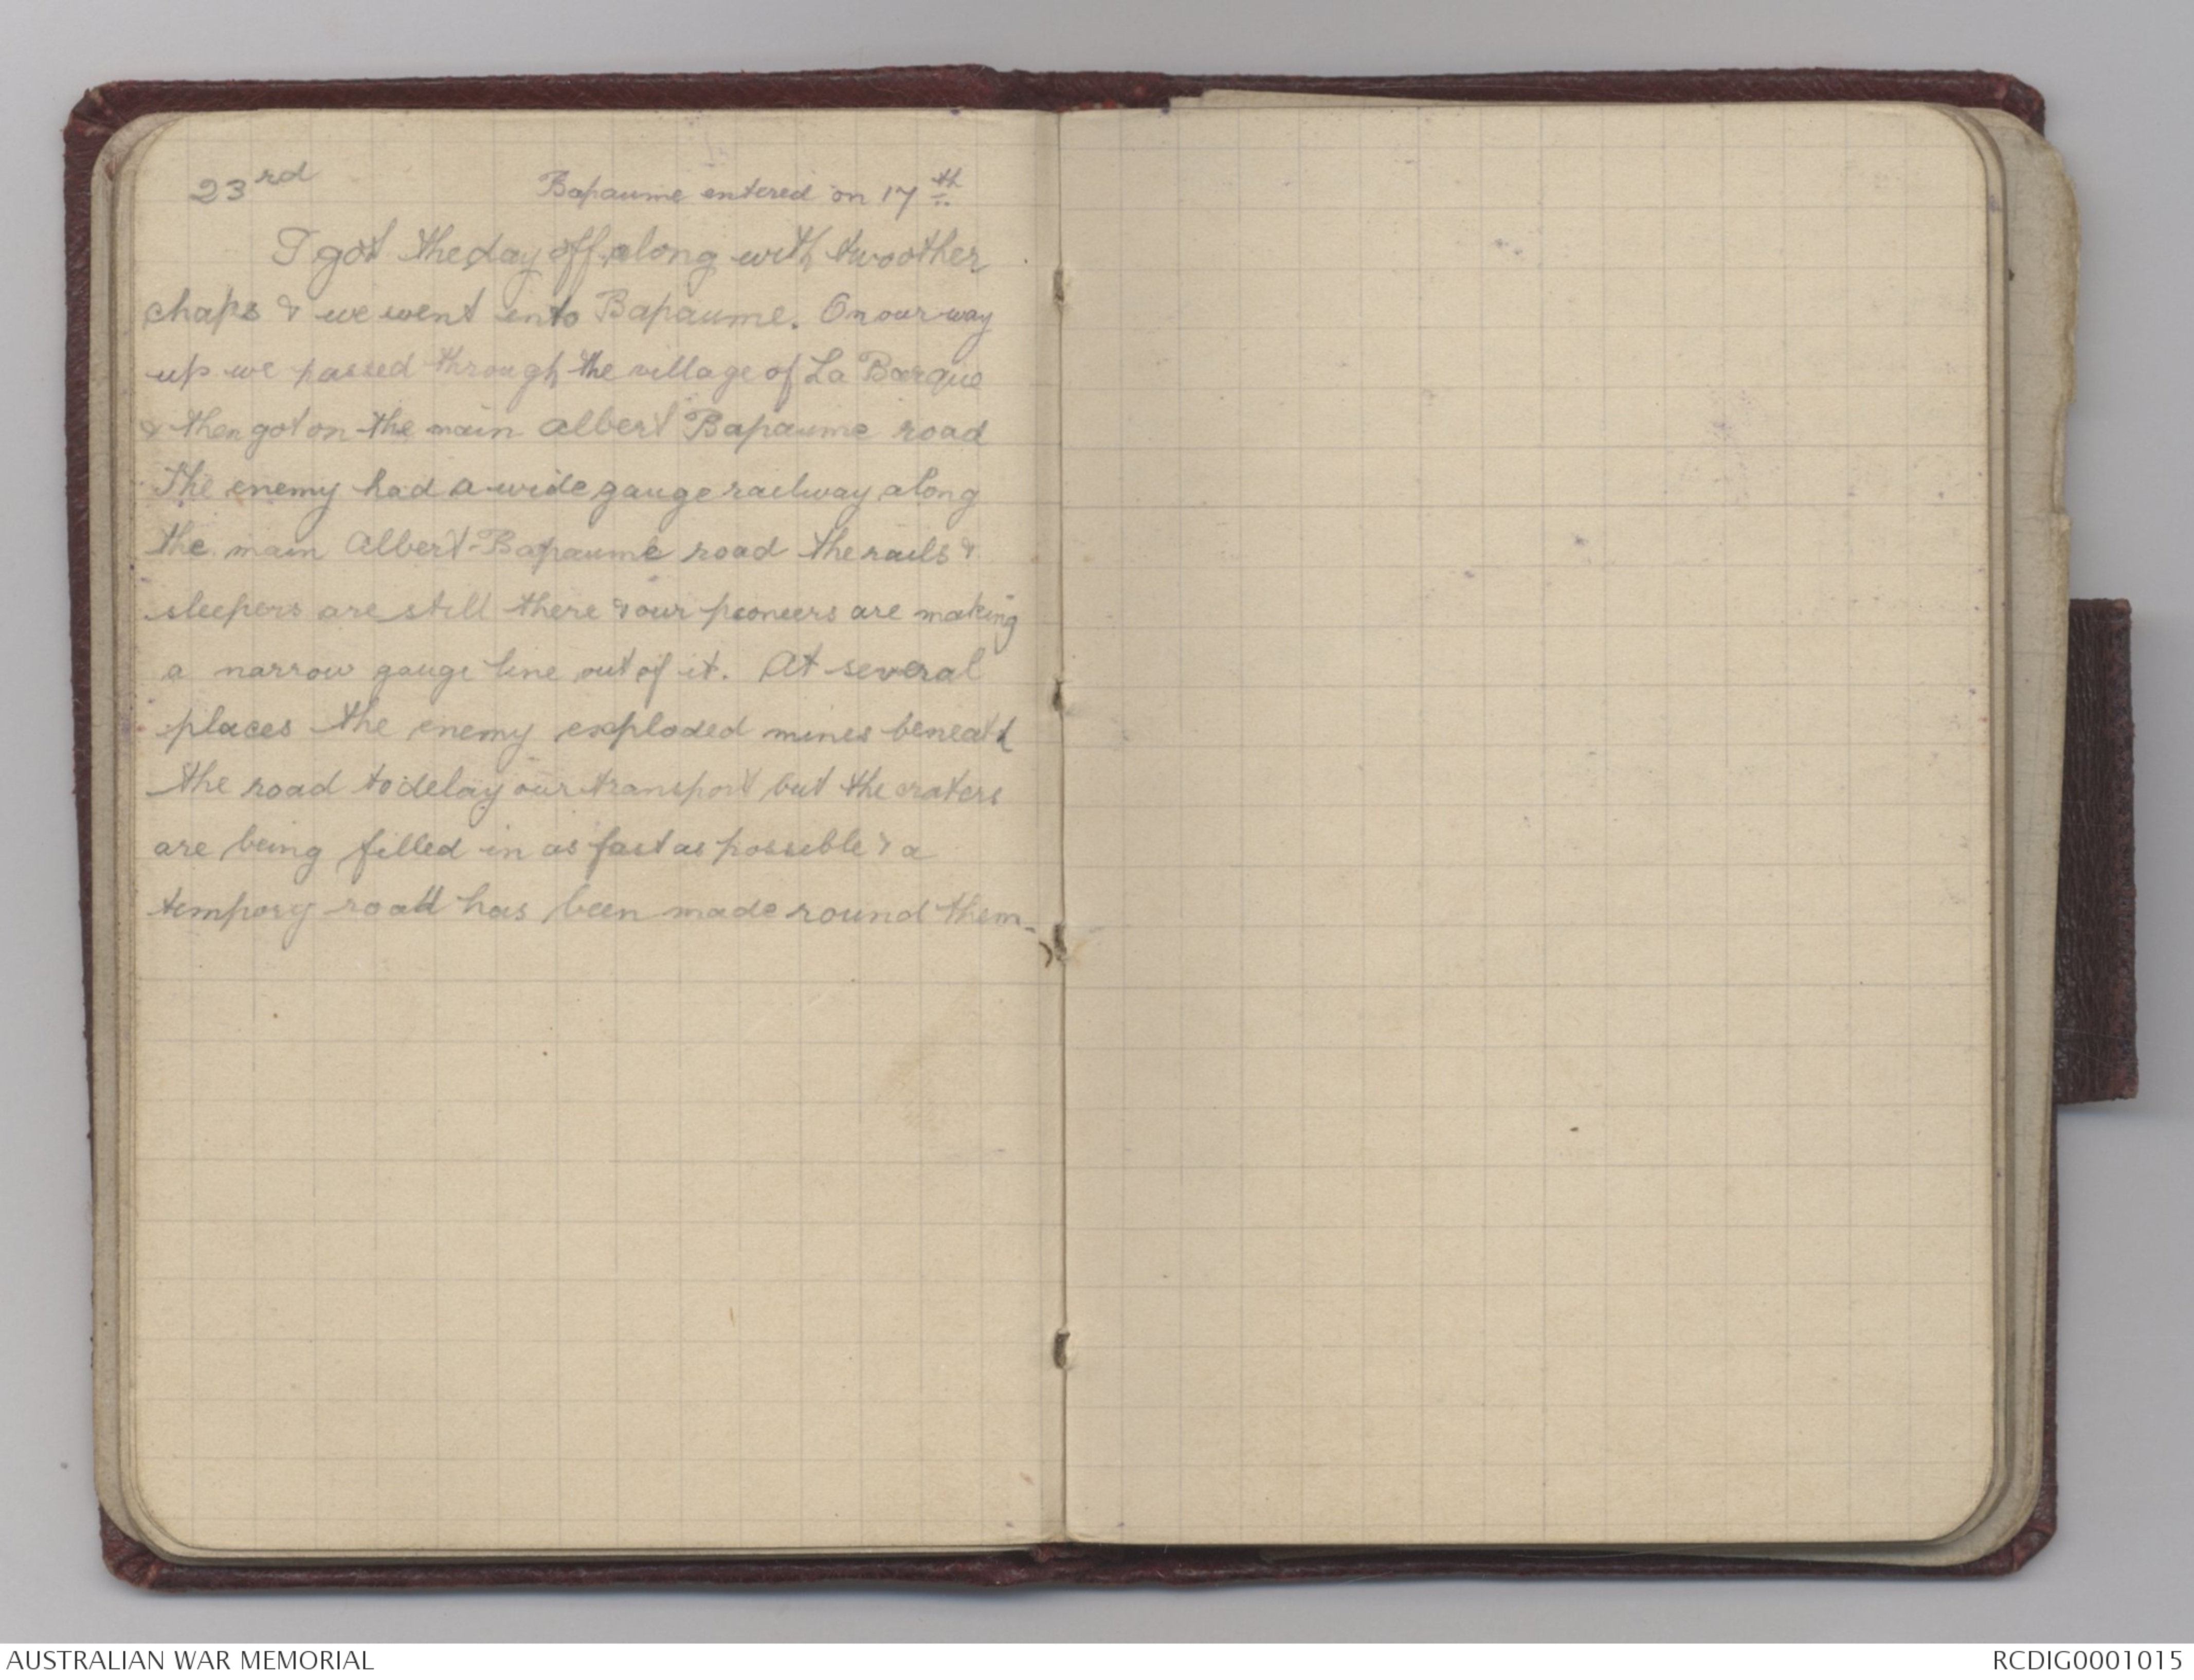 23rd Bapaume entered on 17th
I got the day off along with two other
chaps & we went into Bapaume. On our way
up we passed through the village of La Barque
& then got on the main Albert Bapaume road
The enemy had a wide gauge railway along
the main Albert-Bapaume road the rails &
sleepers are still there & our pioneers are making
a narrow gauge line out of it. At several
places the enemy exploded mines beneath
the road to delay our transport but the craters
are being filled in as fast as possible & a
tempory road has been made round them.
AUSTRALIAN WAR MEMORIAL
RCDIG0001015